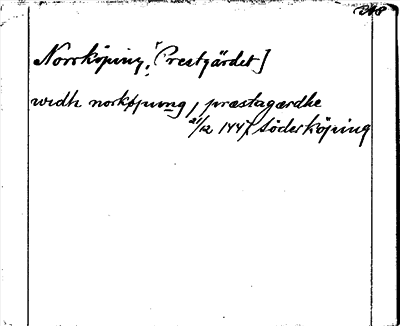 348
Norrköping, [Prestgärdet]
widh norkøpung, præstagærdhe
21/12 1447 Söderköping